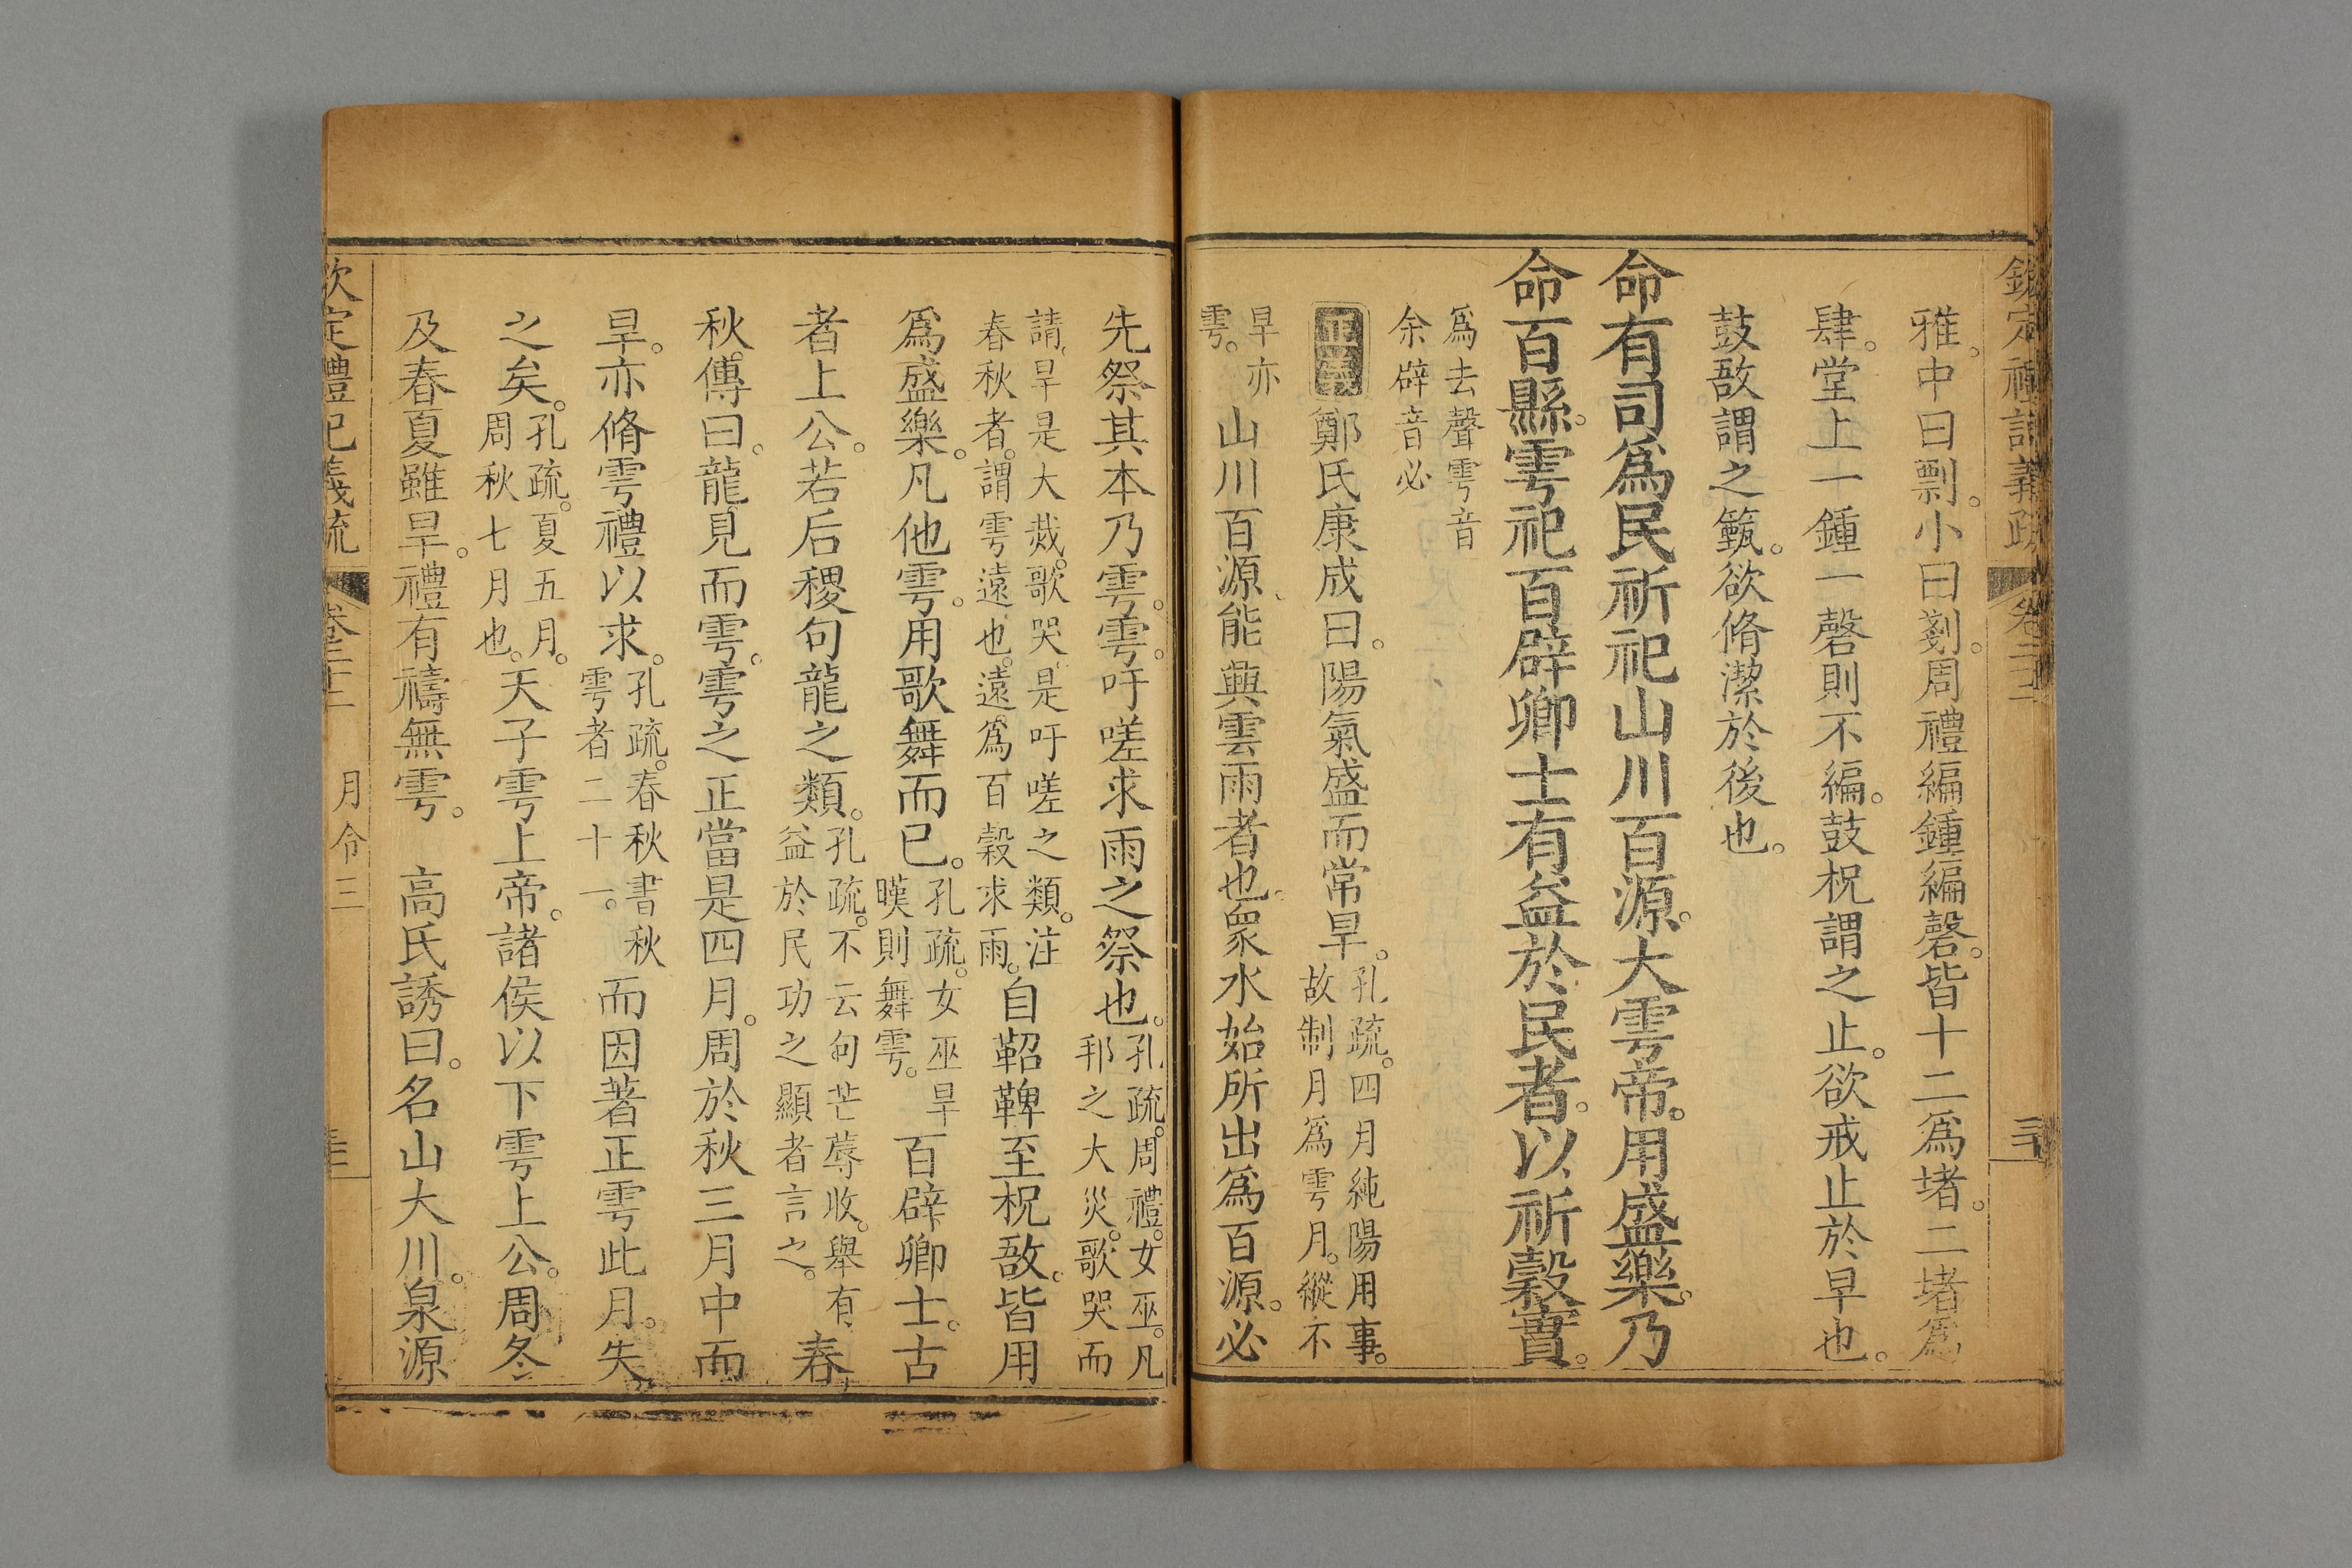 雅。中曰剽。小曰㔁。周禮編鍾編磬。皆十二爲堵。二堵爲
肆。堂上一鍾一磬則不編。鼓柷謂之止。欲戒止於早也。
鼓敔謂之籈。欲脩潔於後也。
命有司爲民祈祀山川百源。大雩帝。用盛樂。乃
命百縣。雩祀百辟卿士有益於民者。以祈穀實。
爲去聲雩音
余辟音必
正義
鄭氏康成曰。陽氣盛而常旱。
孔疏。四月純陽用事。
故制月爲雩月。縱不
旱亦
雩。
山川百源、能興雲雨者也。衆水始所出爲百源。必
先祭其本乃雩。雩。吁嗟求雨之祭也。
孔疏。周禮。女巫。凡
邦之大災。歌哭而
請、旱是大烖。歌哭、是吁嗟之類。注
春秋者。謂雩遠也。遠。爲百穀求雨。
自鞀鞞至柷敔。皆用
爲盛樂。凡他雩。用歌舞而已。
孔疏。女巫旱
暵則舞雩。
百辟卿士。古
者上公。若后稷句龍之類。
孔疏。不云句芒蓐收。舉有
益於民功之顯者言之。
春
秋傳曰。龍見而雩。雩之正當是四月。周於秋三月中而
旱。亦脩雩禮以求。
孔疏。春秋書秋
雩者二十一。
而因著正雩此月。失
之矣。
孔疏。夏五月。
周秋七月也。
天子雩上帝。諸侯以下雩上公。周冬
及春夏雖旱。禮有禱無雩。 高氏誘曰。名山大川。泉源
月令三